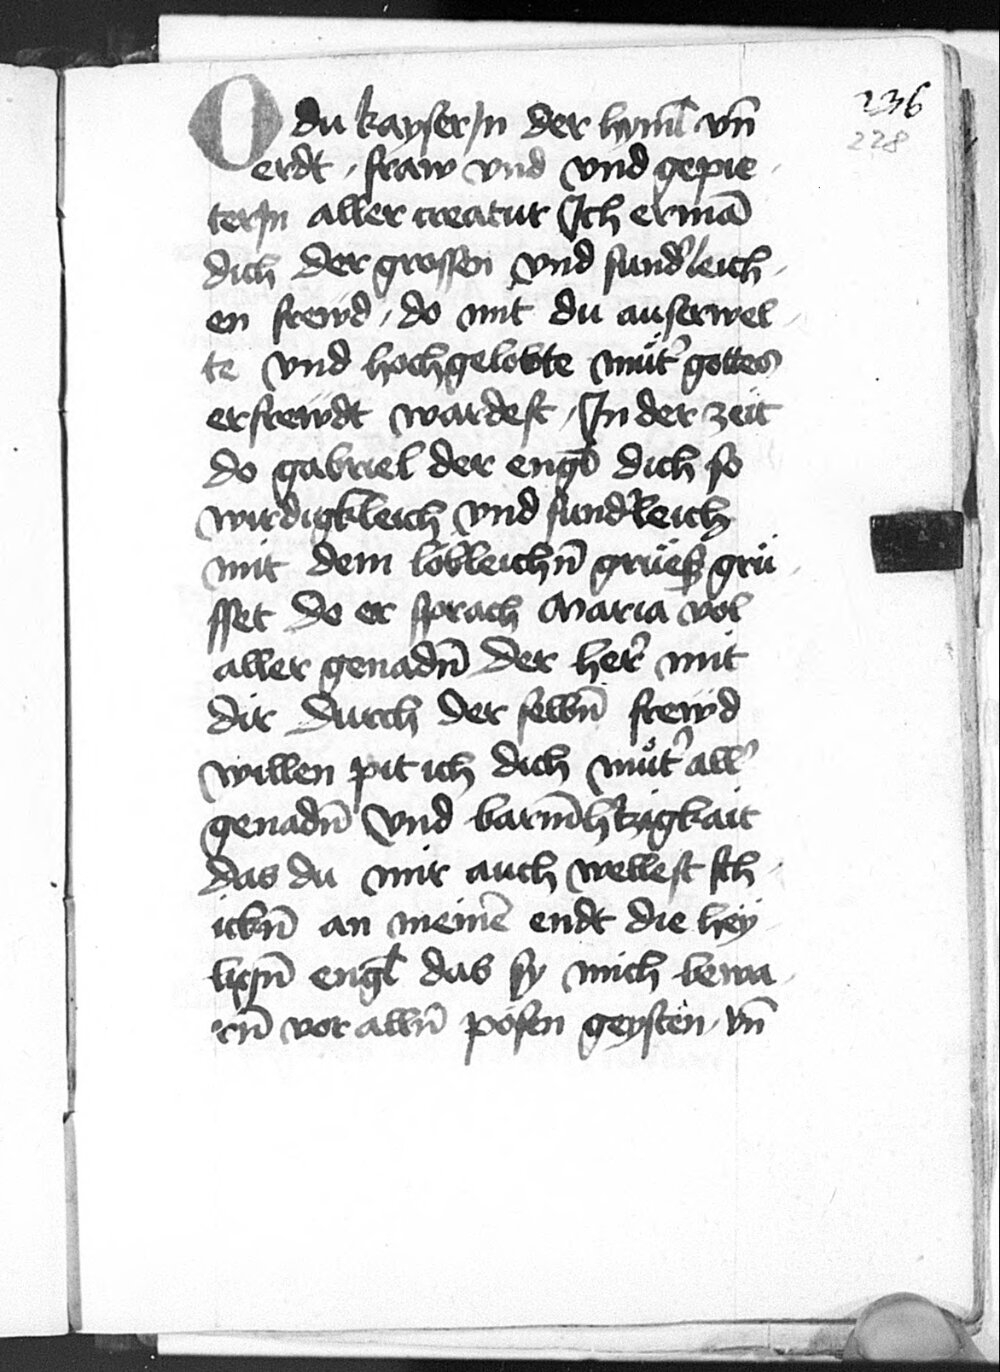 236
228
O du kayserJn der hyml̄ vn̄
erdt · fraw vnd vnd gepie
terJn aller creatur Jch ermā
dich der grossen vnd sund᾽leich
en frewd · do mit du auserwel
te vnd hochgelobte můt᾽ gottes
erfrewdt wardest · Jn der zeit
do gabriel der engl̄ dich so
wirdigkleich vnd sundꝛleich
mit dem löbleichn̄ grüeß grü
sset do er sprach Maria vol
aller genadn̄ der her᾽ mit
dir durch der selbn̄ frewd
willen pit ich dich můt᾽ all᾽
genadn̄ vnd barm̄htzigkait
das du mir auch wellest sch
ickn̄ an meinē endt die hey
ligsn̄ engl̄ das sy mich bewa
rn̄ vor alln̄ pösen geysten · vn̄